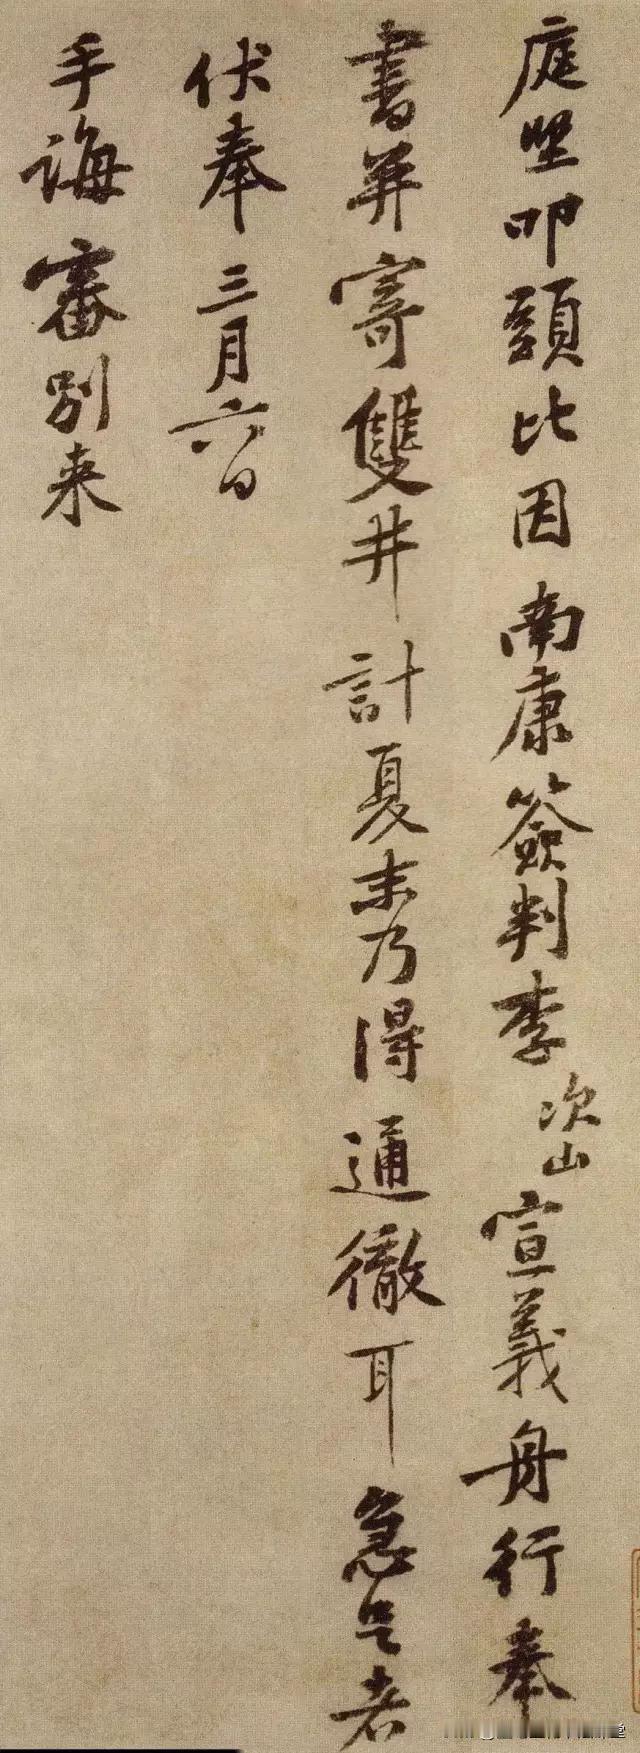 庭堅叩頭比因南康簽判李次山宣義舟行奉
書並寄雙井計夏末乃得通徹耳急足者
伏奉三月六日
手誨審別來